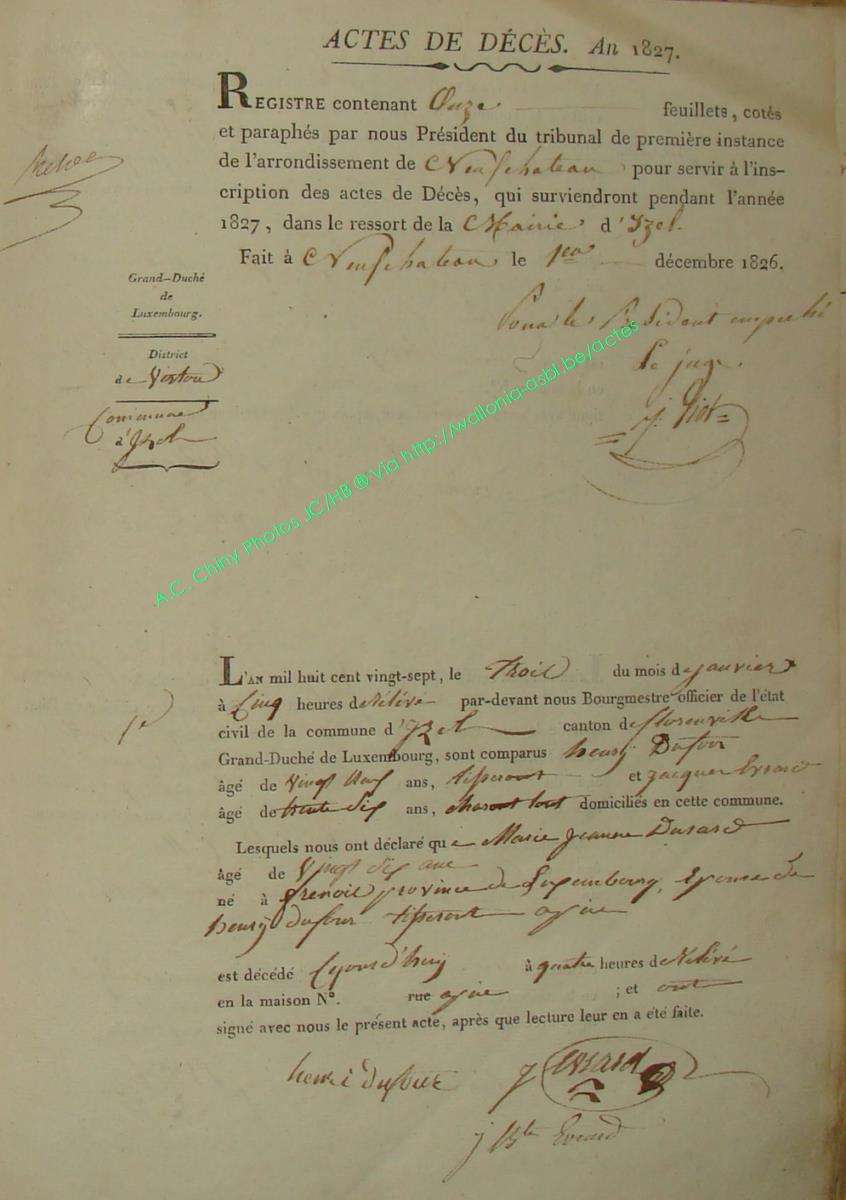 ACTES DE DÉCÈS. An 1827.
REGISTRE contenant Onze feuillets, cotés
et paraphés par nous Président du tribunal de première instance
de l'arrondissement de Neufchateau pour servir à l'ins-
cription des actes de Décès, qui surviendront pendant l'année
1827, dans le ressort de la Mairie d'Izel.
Fait à Neufchateau le 1er décembre 1826.
Grand-Duché
de
Luxembourg.
District
de Virton
Commune
d'Izel
Pour le Président empeché
Le juge.
A.C. Chiny Photos JC/HB ® Via http://wallonia-asbl.be/actes
1e
L'AN mil huit cent vingt-sept, le Trois du mois de janvier
à Cinq heures de relevé par-devant nous Bourgmestre officier de l'état
civil de la commune d'Izel canton de florenville
Grand-Duché de Luxembourg, sont comparus henry Dufour
âgé de Vingt Neuf ans, tisserant et jacques Evrard
âgé de trente Six ans, domiciliés en cette commune.
Lesquels nous ont déclaré que Marie jeanne
âgé de Vingt Six ans
né à frenois province de Luxembourg, Epouse de
henry dufour tisserant
est décédé à quatre heures de Relévé
en la maison N°. rue ; et ont
signé avec nous le présent acte, après que lecture leur en a été faite.
henri dufour J Evrard
j Bte Evrard